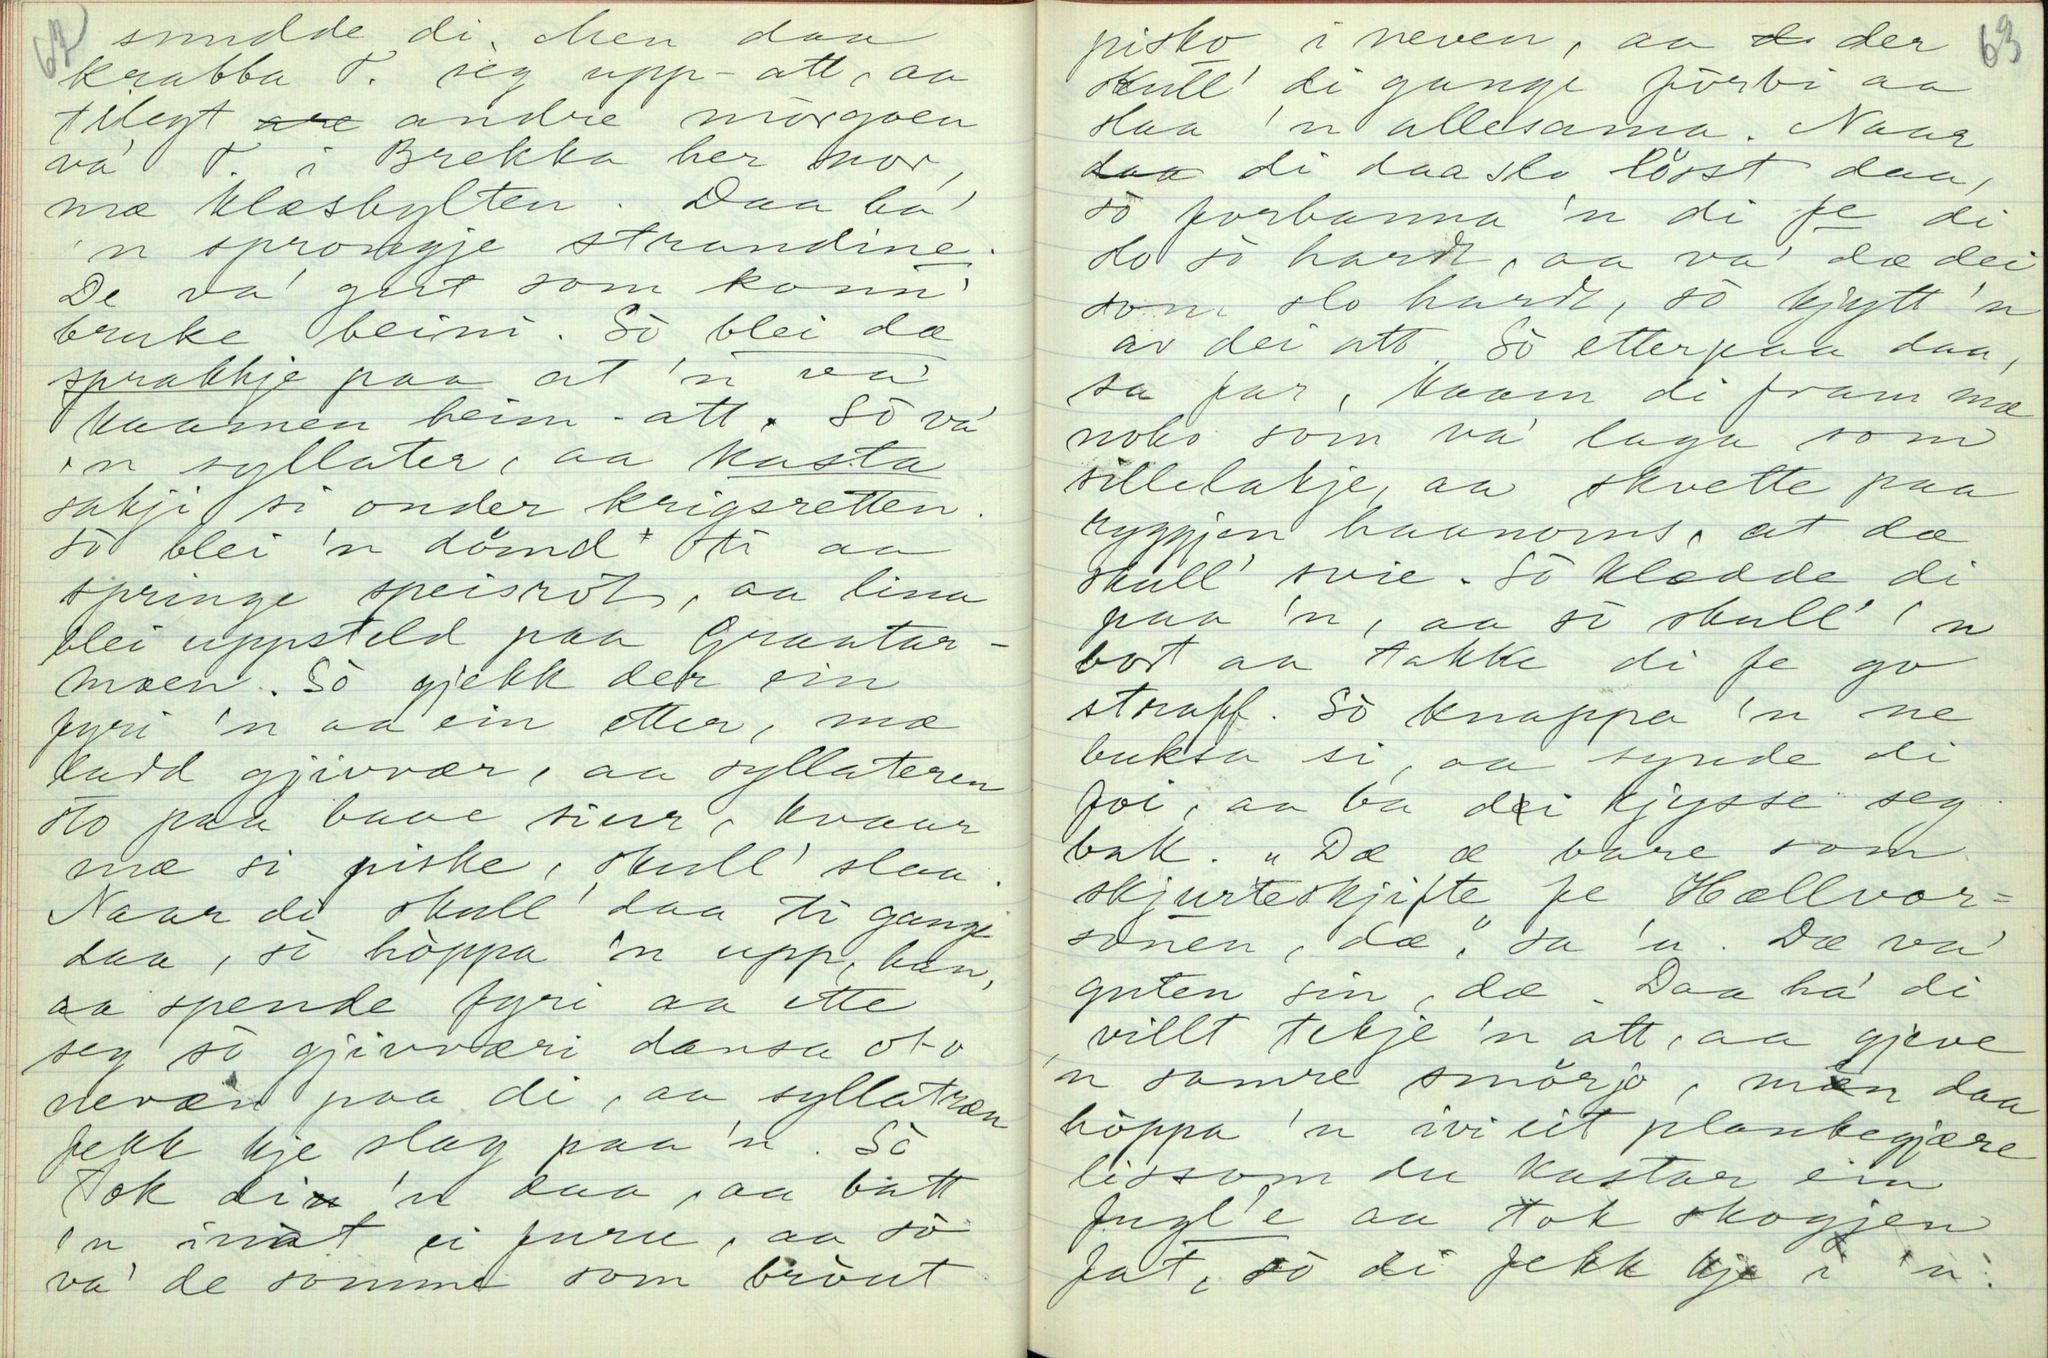 62
snudde di. Men daa
krabba T. seg upp-att, aa
tilegt are andre mòrgoen
va' T. i Brekka her nor,
mæ klæsbylten. Daa ha'
'n sprongje strandine.
De va' gut som konn'
bruke beini. Sò blei dæ
sprakkje paa at 'n va'
kaamen heim-att. Sò va'
'n syllater, aa kasta
sakji si onder krigsretten.
Sò blei 'n dömd ti aa
springe speisròt, aa lina
blei uppsteld paa Graatar-
moen. Sò gjekk der ein
fyri 'n aa ein etter, mæ
ladd gjivær, aa syllateren
sto paa baae siur, kvaar
mæ si piske, skull' slaa.
Naar di skull' daa ti gange
daa, sò hòppa 'n upp, han,
aa spende fyri aa ette
seg sò gjiværi dansa oto
nevæn paa di, aa syllatræn
fekk kje slag paa 'n. Sò
tok di 'n daa, aa batt
'n innat ei furu, aa sò
va' de somme som bròut
63
pisko i neven, aa d der
skull' di gange fòrbi aa
slaa 'n allesama. Naar
daa di daa slo löst daa,
sò forbanna 'n di fe di
slo sò hardt, aa va' dæ dei
som slo hardt, sò kjytt 'n
av dei att. Sò etterpaa daa,
sa far, kaam di fram mæ
noko som va' laga som
sillelakje, aa skvette paa
ryggjen haanoms, at dæ
skull' svie. Sò klædde di
paa 'n, aa sò skull' 'n
bort aa takke di fe go
straff. Sò knappa 'n ne
buksa si, aa synde di
foi, aa ba dei kjysse seg
bak. "Dæ æ bare som
skjurteskjifte fe Hællvor=
sònen, dæ," sa 'n. Dæ va'
guten sin, dæ. Daa ha' di
villt tekje 'n att, aa gjeve
'n somre smörjo, men daa
hòppa 'n ivi eit plankegjære
lissom du kastar ein
fugl'e aa tok skogjen
fat, sò di fekk kje i 'n.